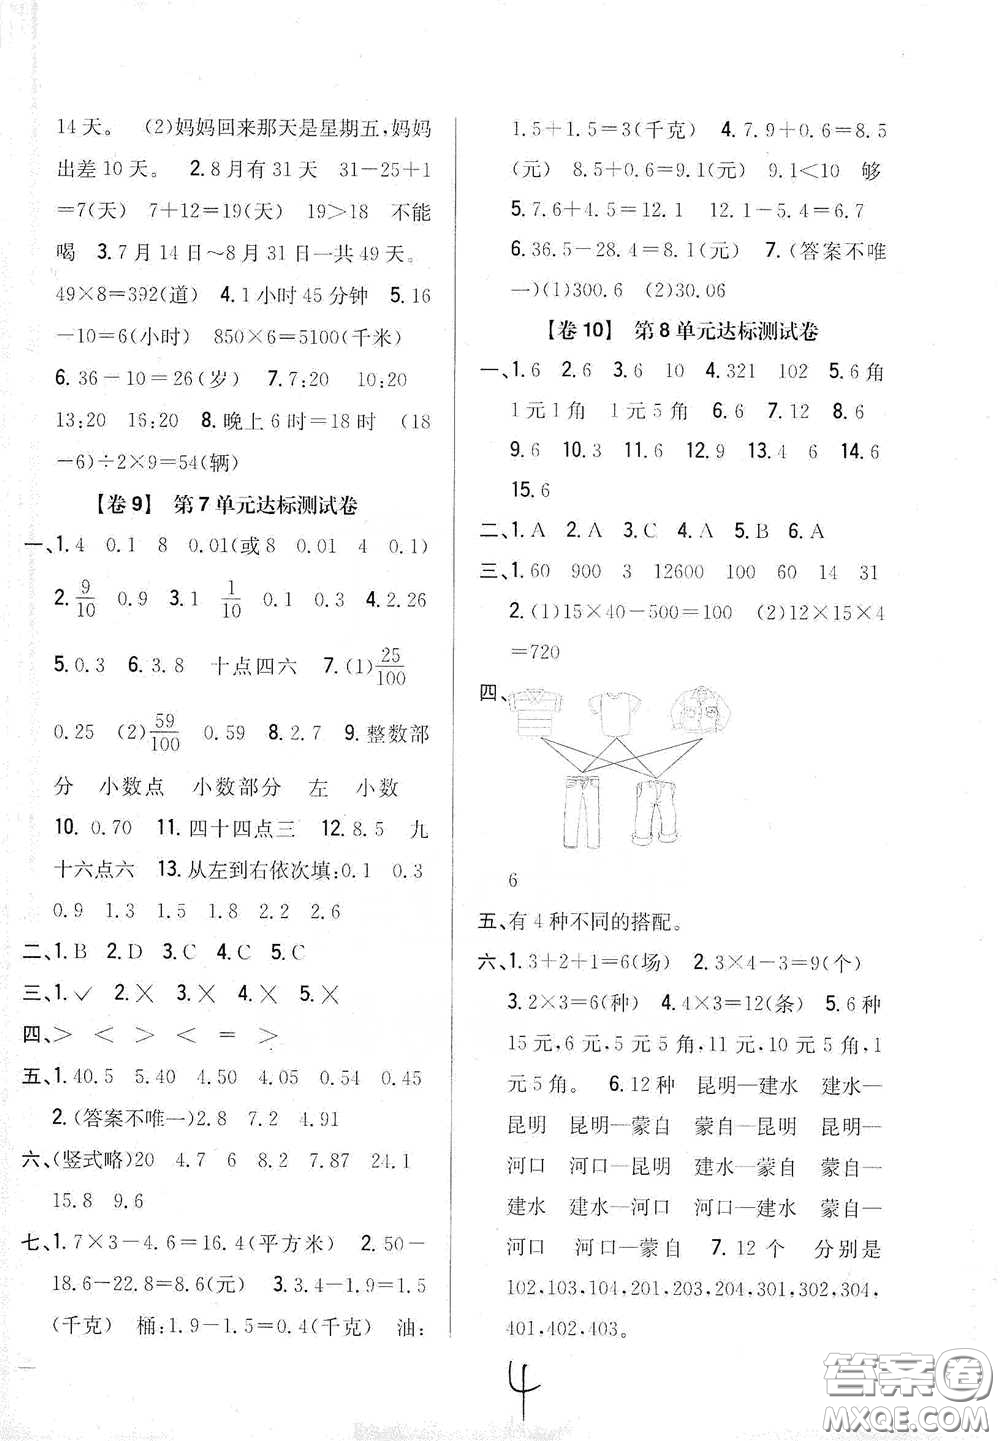 14 天。 (2)妈妈回来那天是星期五,妈妈
出差 10 天。 2.8 月有 31 天 31－25＋1
＝7(天) 7＋12＝19(天) 19＞18 不能
喝 3.7 月 14 日～8 月 31 日一共 49 天。
49×8＝392(道) 4.1 小时 45 分钟 5.16
－10＝6(小时) 850×6＝5100(千米)
6.36－10＝26(岁) 7.7:20 10:20
13:20 16:20 8.晚上 6 时＝18 时 (18
－6)÷2×9＝54(辆)
【卷 9】 第 7 单元达标测试卷
一、1.4 0.1 8 0.01(或 8 0.01 4 0.1)
2.9/10 0.9 3.1 1/10 0.1 0.3 4.2.26
5.0.3 6.3.8 十点四六 7.(1)25/100
0.25 (2)59/100 0.59 8.2.7 9.整数部
分 小数点 小数部分 左 小数
10.0.70 11.四十四点三 12.8.5 九
十六点六 13.从左到右依次填:0.1 0.3
0.9 1.3 1.5 1.8 2.2 2.6
二、1.B 2.D 3.C 4.C 5.C
三、1.✓ 2.× 3.× 4.× 5.×
四、＞ ＜ ＞ ＜ ＝ ＞
五、1.40.5 5.40 4.50 4.05 0.54 0.45
2.(答案不唯一)2.8 7.2 4.91
六、(竖式略)20 4.7 6 8.2 7.87 24.1
15.8 9.6
七、1.7×3－4.6＝16.4(平方米) 2.50－
18.6－22.8＝8.6(元) 3.3.4－1.9＝1.5
(千克) 桶:1.9－1.5＝0.4(千克) 油:
1.5＋1.5＝3(千克) 4.7.9＋0.6＝8.5
(元) 8.5＋0.6＝9.1(元) 9.1＜10 够
5.7.6＋4.5＝12.1 12.1－5.4＝6.7
6.36.5－28.4＝8.1(元) 7.(答案不唯
一)(1)300.6 (2)30.06
【卷 10】 第 8 单元达标测试卷
一、1.6 2.6 3.6 10 4.321 102 5.6 角
1 元 1 角 1 元 5 角 6.6 7.12 8.6
9.6 10.3 11.6 12.9 13.4 6 14.6
15.6
二、1.A 2.A 3.C 4.A 5.B 6.A
三、1.60 900 3 12600 100 60 14 31
2.(1)15×40－500＝100 (2)12×15×4
＝720
四、
6
五、有 4 种不同的搭配。
六、1.3＋2＋1＝6(场) 2.3×4－3＝9(个)
3.2×3＝6(种) 4.4×3＝12(条) 5.6 种
15 元,6 元,5 元 5 角,11 元,10 元 5 角,1
元 5 角。 6.12 种 昆明—建水 建水—
昆明 昆明—蒙自 蒙自—昆明 昆明—
河口 河口—昆明 建水—蒙自 蒙自—
建水 建水—河口 河口—建水 蒙自—
河口 河口—蒙自 7.12 个 分别是
102,103,104,201,203,204,301,302,304,
401,402,403。
4
答案卷
MXQE.COM